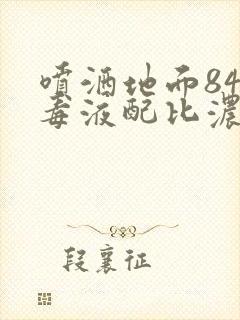 喷洒地面84
毒液配比浓
段襄征